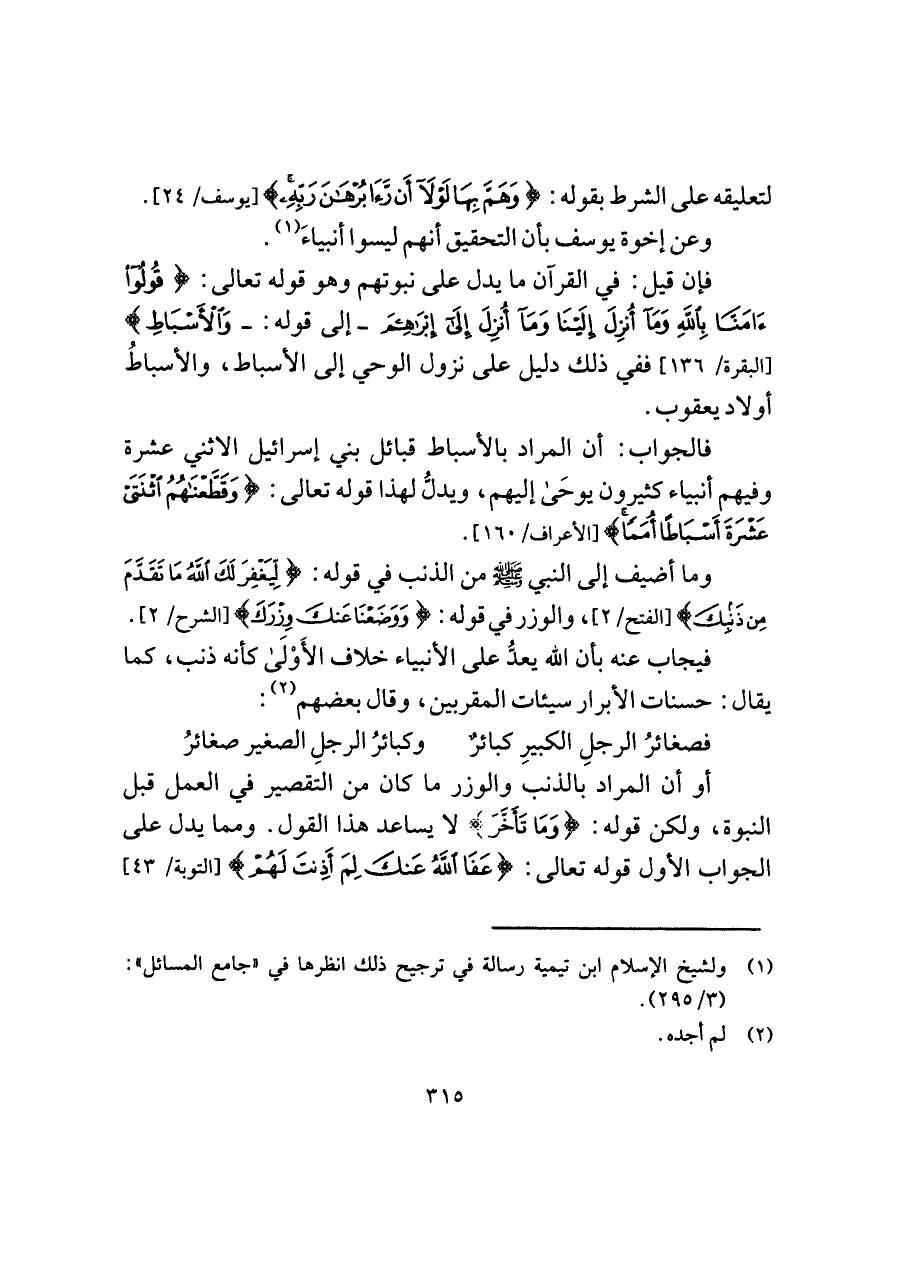 لتعليقه على الشرط بقوله: ﴿ وَهَمَّ بِهَا لَوْلَآ أَن رَّءَا بُرْهَٰنَ رَبِّهِۦۚ ﴾ [يوسف/ ٢٤].
وعن إخوة يوسف بأن التحقيق أنهم ليسوا أنبياءَ(١).
فإن قيل: في القرآن ما يدل على نبوتهم وهو قوله تعالى: ﴿ قُولُوٓا۟
ءَامَنَّا بِٱللَّهِ وَمَآ أُنزِلَ إِلَيْنَا وَمَآ أُنزِلَ إِلَىٰٓ إِبْرَٰهِـۧمَ ـ إلى قوله: ـ وَٱلْأَسْبَاطِ ﴾
[البقرة/ ١٣٦] ففي ذلك دليل على نزول الوحي إلى الأسباط، والأسباطُ
أولاد يعقوب.
فالجواب: أن المراد بالأسباط قبائل بني إسرائيل الاثني عشرة
وفيهم أنبياء كثيرون يوحَىٰ إليهم، ويدلُّ لهذا قوله تعالى: ﴿ وَقَطَّعْنَٰهُمُ ٱثْنَتَىْ
عَشْرَةَ أَسْبَاطًا أُمَمًاۚ ﴾ [الأعراف/ ١٦٠].
وما أضيف إلى النبي ﷺ من الذنب في قوله: ﴿ لِّيَغْفِرَ لَكَ ٱللَّهُ مَا تَقَدَّمَ
مِن ذَنۢبِكَ ﴾ [الفتح/ ٢]، والوزر في قوله: ﴿ وَوَضَعْنَا عَنكَ وِزْرَكَ ﴾ [الشرح/ ٢].
فيجاب عنه بأن الله يعدُّ على الأنبياء خلاف الأَوْلَىٰ كأنه ذنب، كما
يقال: حسنات الأبرار سيئات المقربين، وقال بعضهم(٢):
فصغائرُ الرجلِ الكبيرِ كبائرٌ وكبائرُ الرجلِ الصغير صغائرُ
أو أن المراد بالذنب والوزر ما كان من التقصير في العمل قبل
النبوة، ولكن قوله: ﴿ وَمَا تَأَخَّرَ ﴾ لا يساعد هذا القول. ومما يدل على
الجواب الأول قوله تعالى: ﴿ عَفَا ٱللَّهُ عَنكَ لِمَ أَذِنتَ لَهُمْ ﴾ [التوبة/ ٤٣]
(١) ولشيخ الإسلام ابن تيمية رسالة في ترجيح ذلك انظرها في «جامع المسائل»:
(٣/ ٢٩٥).
(٢) لم أجده.
٣١٥